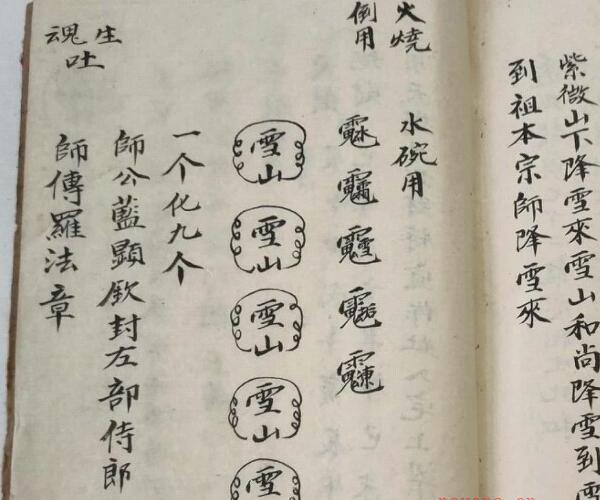 紫微山下降雪來雪山和尚降雪到雪
到祖本宗師降雪來
火燒
倒用
水碗用
雪山
雪山
雪山
雪山
雪
一个化九个
師公藍顯欽封左部侍郎
師傳羅法章
生
魂
吐